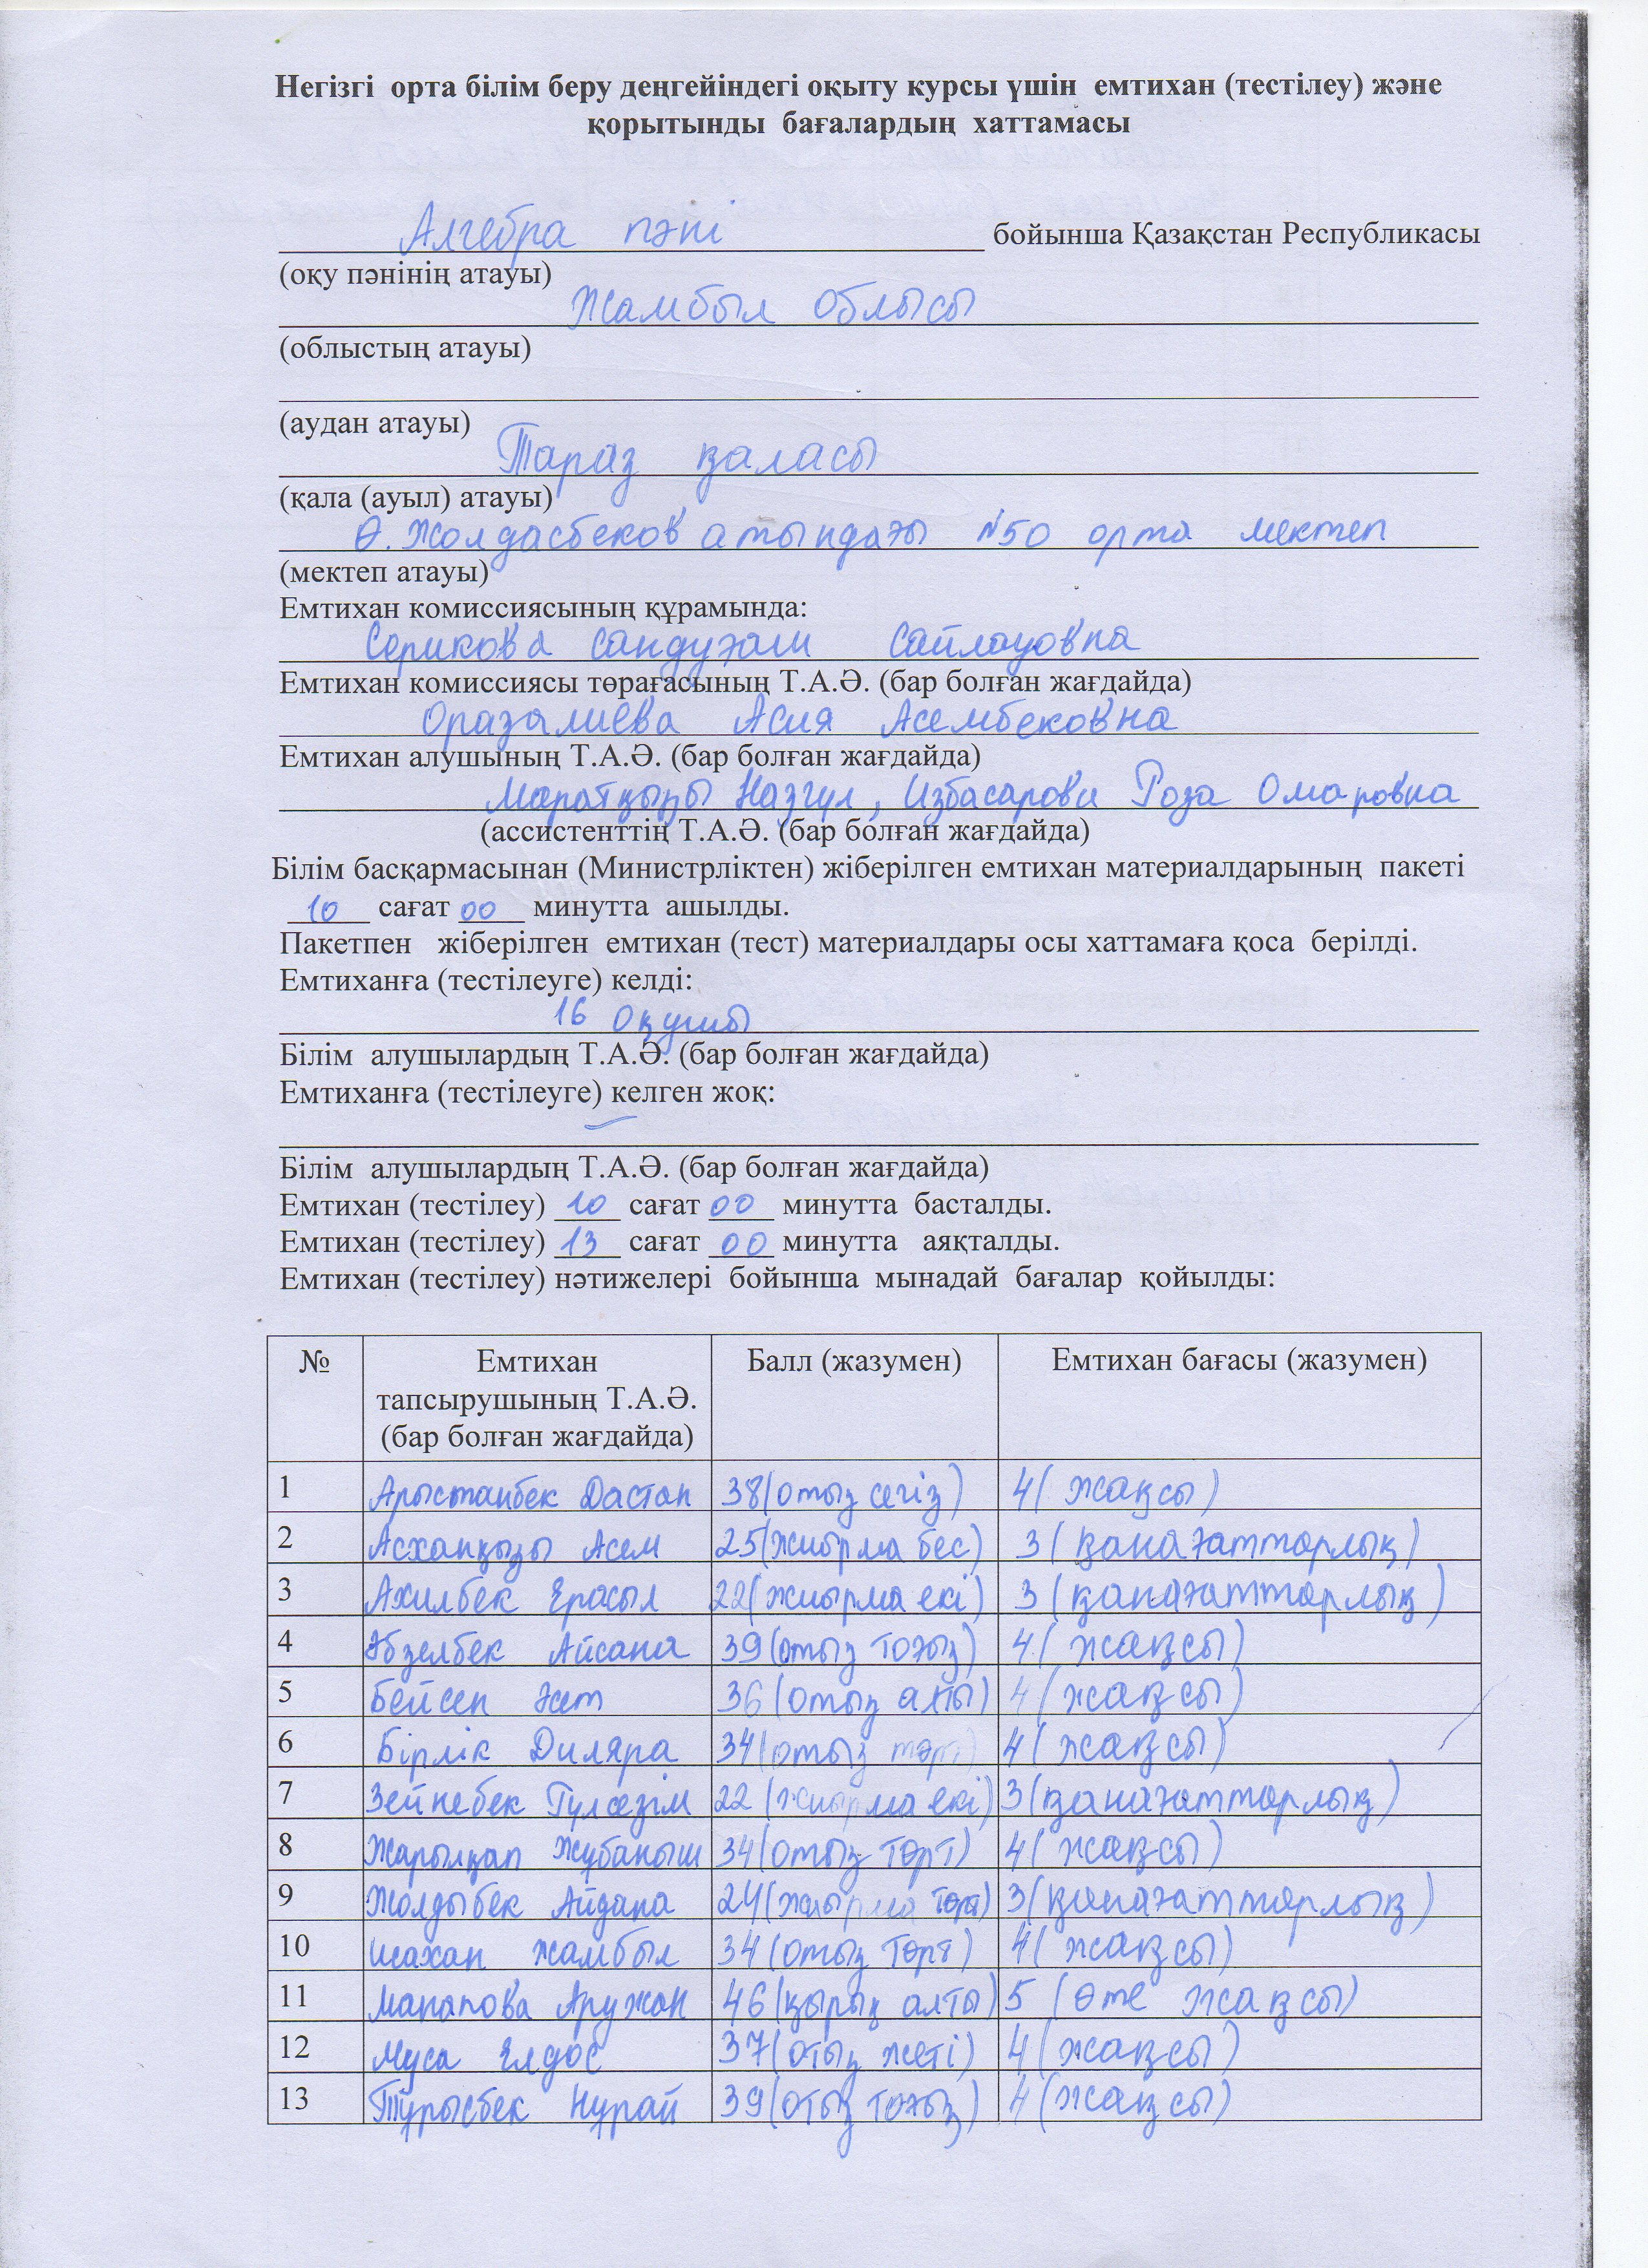 Негізгі орта білім беру деңгейіндегі оқыту курсы үшін емтихан (тестілеу) және
қорытынды бағалардың хаттамасы
Алгебра пәні бойынша Қазақстан Республикасы
(оқу пәнінің атауы)
Жамбыл облысы
(облыстың атауы)
(аудан атауы)
Тараз қаласы
(қала (ауыл) атауы)
Ө. Жолдасбеков атындағы №50 орта мектеп
(мектеп атауы)
Емтихан комиссиясының құрамында:
Серикова Сандуғаш Сайлауовна
Емтихан комиссиясы төрағасының Т.А.Ә. (бар болған жағдайда)
Оразалиева Асия Асембековна
Емтихан алушының Т.А.Ә. (бар болған жағдайда)
Маратқызы Назгүл, Избасарова Роза Омаровна
(ассистенттің Т.А.Ә. (бар болған жағдайда)
Білім басқармасынан (Министрліктен) жіберілген емтихан материалдарының пакеті
10 сағат 00 минутта ашылды.
Пакетпен жіберілген емтихан (тест) материалдары осы хаттамаға қоса берілді.
Емтиханға (тестілеуге) келді:
16 оқушы
Білім алушылардың Т.А.Ә. (бар болған жағдайда)
Емтиханға (тестілеуге) келген жоқ:
–
Білім алушылардың Т.А.Ә. (бар болған жағдайда)
Емтихан (тестілеу) 10 сағат 00 минутта басталды.
Емтихан (тестілеу) 13 сағат 00 минутта аяқталды.
Емтихан (тестілеу) нәтижелері бойынша мынадай бағалар қойылды:
№ Емтихан тапсырушының Т.А.Ә. (бар болған жағдайда) Балл (жазумен) Емтихан бағасы (жазумен)
1 Арыстанбек Дастан 38(отыз сегіз) 4( жақсы)
2 Асханқызы Асем 25(жиырма бес) 3( қанағаттарлық)
3 Ахилбек Ерасыл 22( жиырма екі) 3( қанағаттарлық)
4 Әбзелбек Айсана 39(отыз тоғыз) 4( жақсы)
5 Бейсен 36 (отыз алты) 4( жақсы)
6 Бірлік Диляра 34(отыз төрт) 4( жақсы)
7 Зейнебек Гүлсезім 22 (жиырма екі) 3(қанағаттарлық)
8 Жарылқап Жұбаныш 34(отыз төрт) 4( жақсы)
9 Жолдыбек Айдана 24(жиырма төрт) 3(қанағаттарлық)
10 Исахан Жамбыл 34 (отыз төрт) 4( жақсы)
11 Манапова Аружан 46(қырық алты) 5 (өте жақсы)
12 Муса Елдос 37(отыз жеті) 4( жақсы)
13 Тұрысбек Нұрай 39(отыз тоғыз) 4(жақсы)